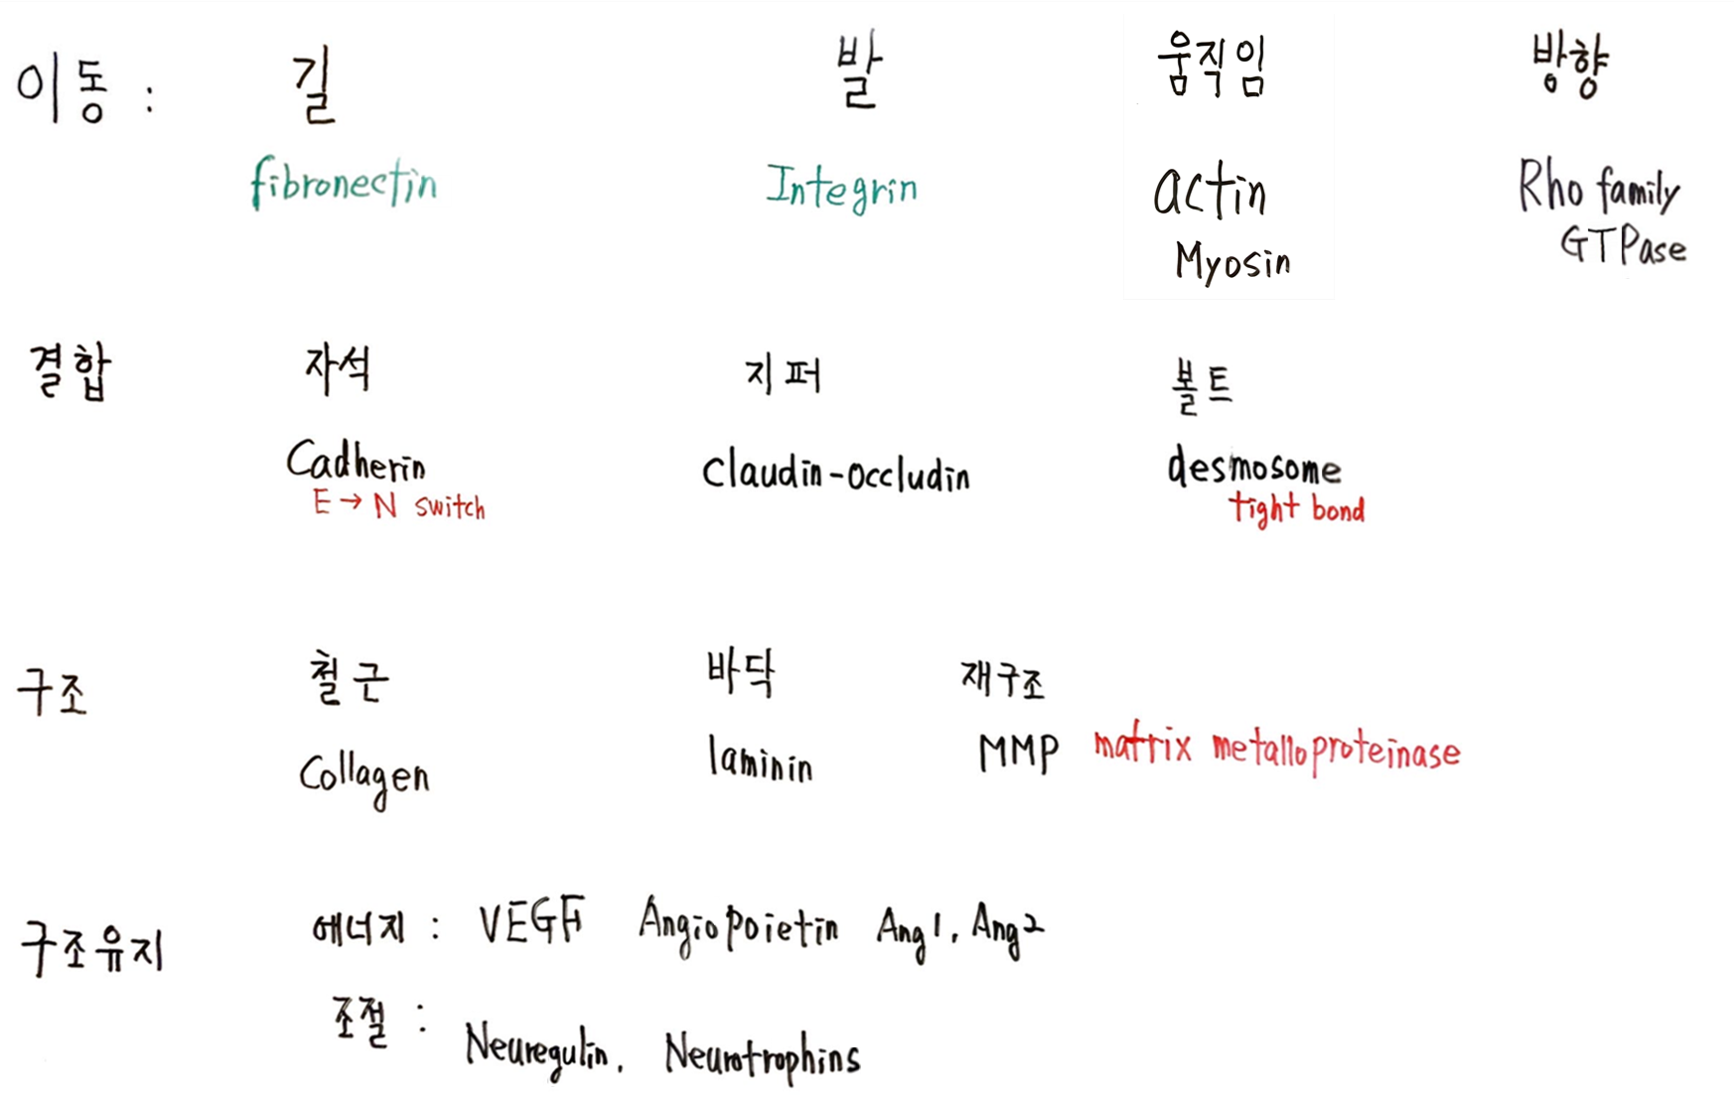 이동 : 길 발 움직임 방향
fibronectin Integrin actin Rho family
Myosin GTPase
결합 자석 지퍼 볼트
Cadherin Claudin-Occludin desmosome
E → N switch tight bond
구조 철근 바닥 재구조
Collagen laminin MMP matrix metalloproteinase
구조유지 에너지 : VEGF Angiopoietin Ang1, Ang2
조절 : Neuregulin, Neurotrophins